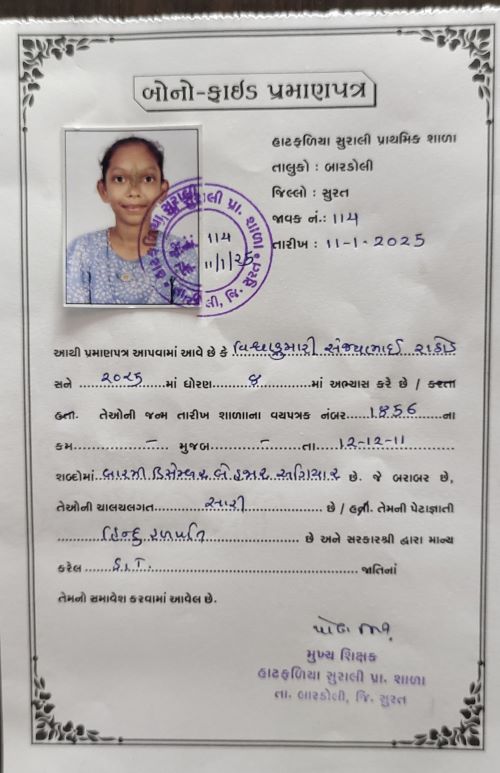 બોનો-ફાઇડ પ્રમાણપત્ર
હાટફળિયા સુરાલી પ્રાથમિક શાળા
તાલુકો : બારડોલી
જિલ્લો : સુરત
જાવક નં.: 114
તારીખ : 11-1-2025
હાટફળિયા સુરાલી પ્રા. શાળા
114
11/1/25
જિ. સુરત
આથી પ્રમાણપત્ર આપવામાં આવે છે કે વિશ્વાકુમારી સંજયભાઈ રાઠોડ
સને 2025 માં ધોરણ 8 માં અભ્યાસ કરે છે / કરતા
હતા. તેઓની જન્મ તારીખ શાળાના વયપત્રક નંબર 1856 ના
કમ - મુજબ - તા 12-12-11
શબ્દોમાં બારમી ડિસેમ્બર બે હજાર અગિયાર છે. જે બરાબર છે,
તેઓની ચાલચલગત સારી છે / હતી. તેમની પેટાજ્ઞાતી
હિન્દુ હળપતિ છે અને સરકારશ્રી દ્વારા માન્ય
કરેલ S.T. જાતિનાં
તેમનો સમાવેશ કરવામાં આવેલ છે.
મુખ્ય શિક્ષક
હાટફળિયા સુરાલી પ્રા. શાળા
તા. બારડોલી, જિ. સુરત